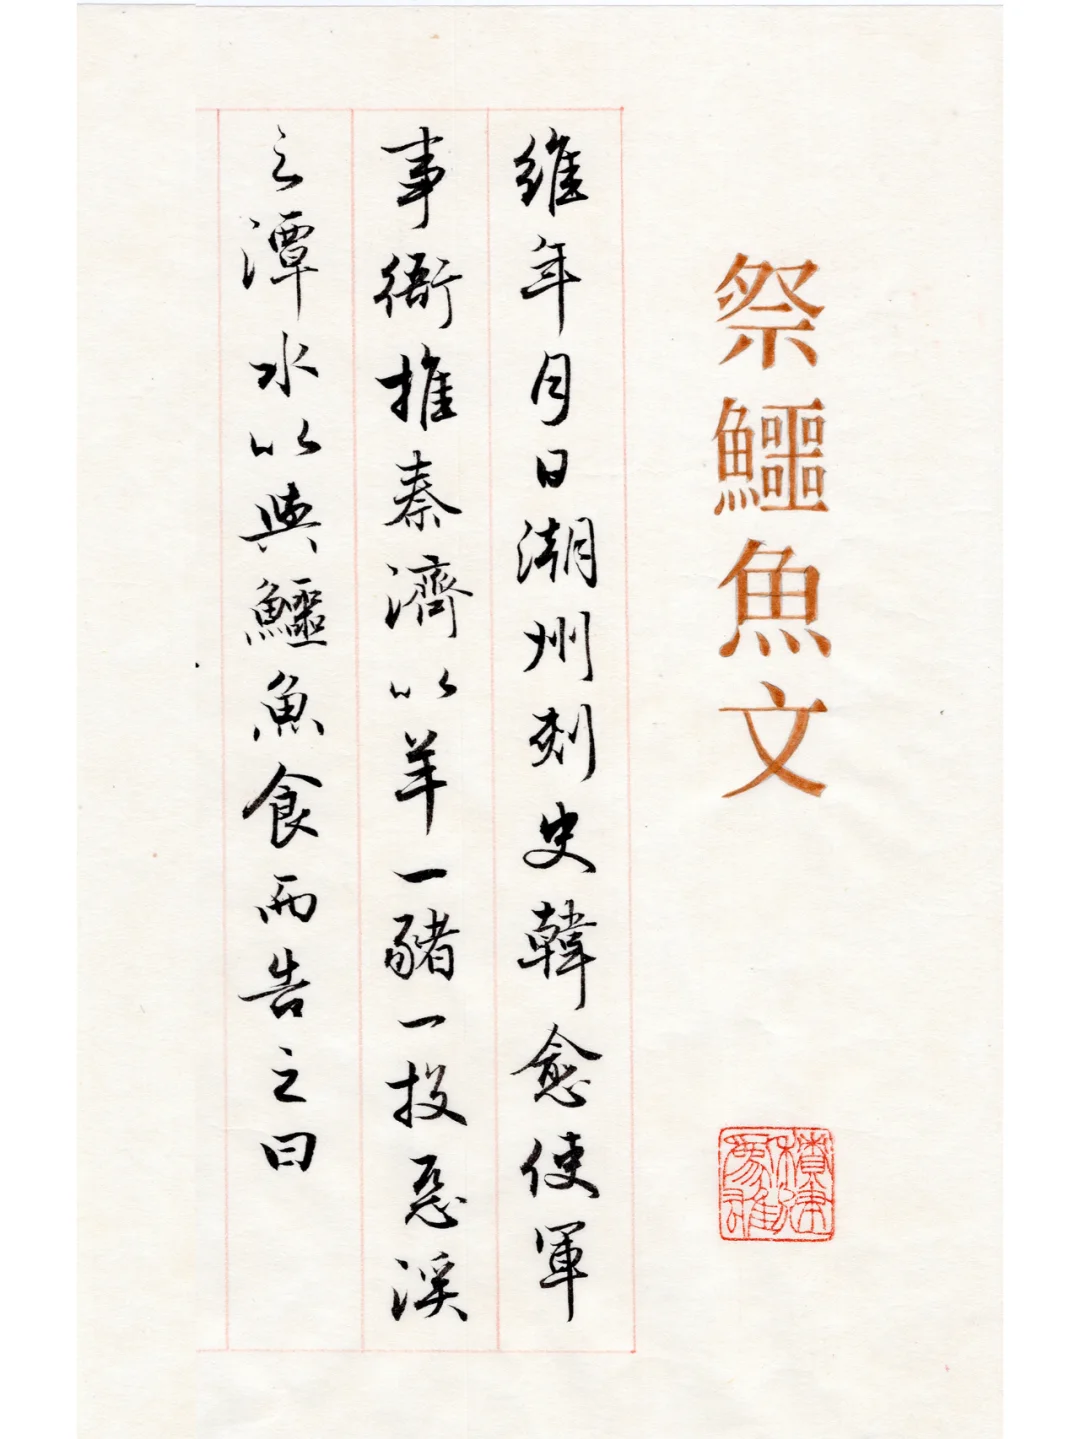 祭鱷魚文
維年月日潮州刺史韓愈使軍
事衙推秦濟以羊一豬一投惡溪
之潭水以與鱷魚食而告之曰